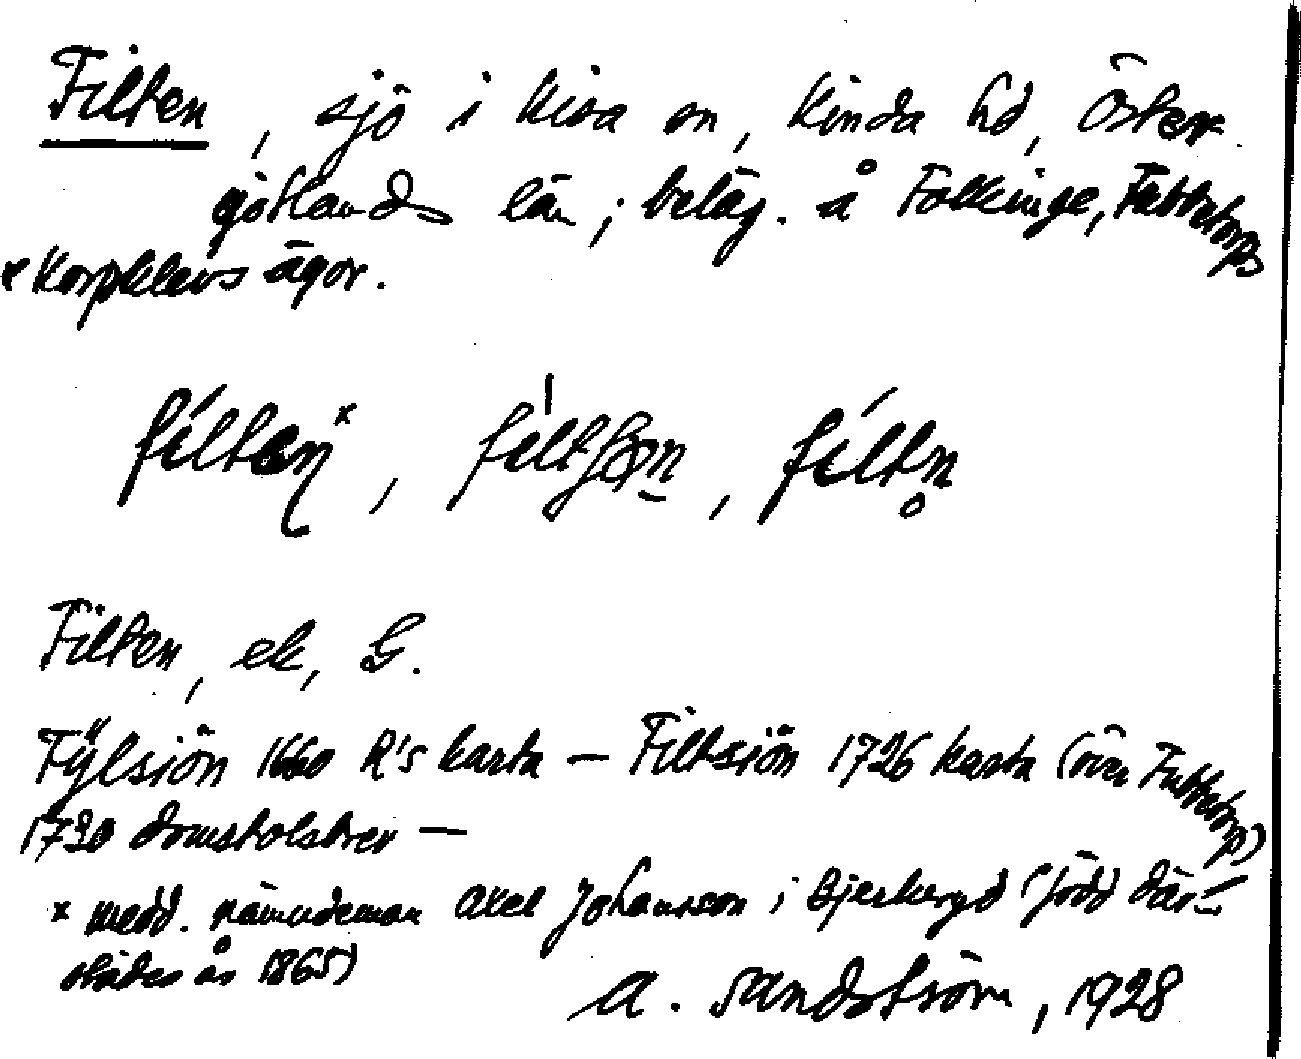 Filten, sjö i Kisa sn, Kinda hd, Öster-
götlands län; beläg. å Folkinge, Fattetorps
& Korpklevs ägor.
filten x, , filtn
Filten, ek, G.
Fÿlsiön 1660 R's karta — Filtsiön 1726 karta (över Fattetorp)
1730 domstolsbrev —
x medd. nämndeman Axel Johansson i Bjerkeryd (född där-
städes år 1865)
A. Sandström, 1928